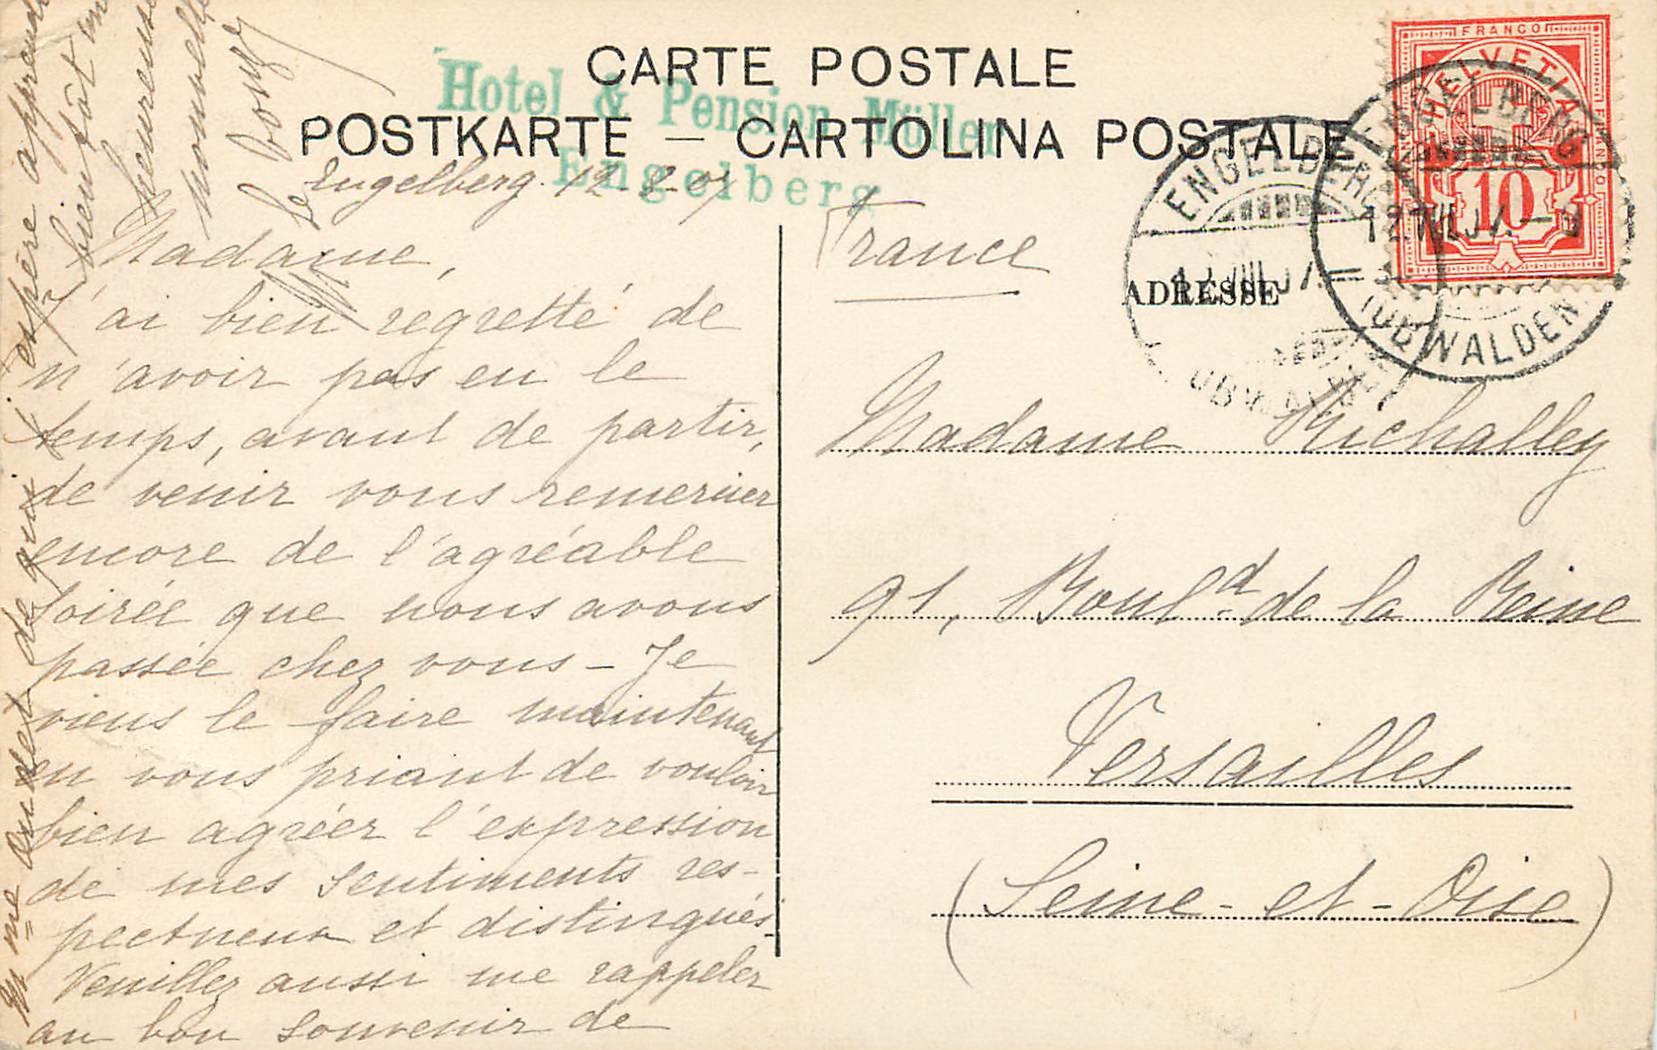 CARTE POSTALE
POSTKARTE — CARTOLINA POSTALE
Hotel & Pension Müller
Engelberg
Engelberg. 12-8-07
Madame,
J'ai bien régretté de
n'avoir pas eu le
temps, avant de partir,
de venir vous remercier
encore de l'agréable
soirée que nous avons
passée chez vous - Je
viens le faire maintenant
en vous priant de vouloir
bien agréer l'expression
de mes sentiments res-
pectueux et distingués.
Veuillez aussi me rappeler
au bon souvenir de
Mme Oudet de qui j'espère apprendre
bientôt un
heureuse
nouvelle
France
ADRESSE
Madame Richalley
91, Boul.d de la Reine
Versailles
(Seine-et-Oise)
FRANCO
HELVETIA
10
ENGELBERG
12.VIII.07.
(OBWALDEN)
ENGELBERG
12.VIII.07.
OBWALDEN